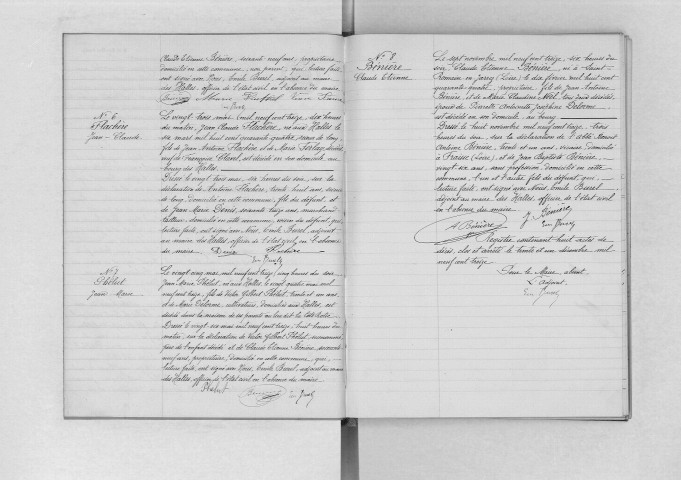 Claude Etienne Bénière, soixante neuf ans, propriétaire,
domicilié en cette commune, non parent, qui lecture faite,
ont signé avec Nous, Emile Burel, adjoint au maire
des Halles, officier de l'état civil en l'absence du maire.
N° 6
Flachère
Jean-Claude
Le vingt trois mars mil neuf cent treize, dix heures
du matin, Jean Claude Flachère, né aux Halles le
six mars mil huit cent quatre, veuf de
fils de Jean Antoine Flachère et de Marie Ferlay, décédés,
de Françoise Clavel, est décédé en son domicile au
bourg des Halles.
Dressé le vingt trois mars, six heures du soir, sur la
déclaration de Antoine Flachère, trente huit ans,
domicilié en cette commune, fils du défunt, et
de Jean Marie Denis, soixante treize ans, marchand
tailleur, domicilié en cette commune, voisin du défunt, qui
lecture faite, ont signé avec Nous, Emile Burel, adjoint
au maire des Halles, officier de l'état civil, en l'absence
du maire.
Denis Flachère
N° 7
Thélut
Jean Marie
Le vingt cinq mai mil neuf cent treize, cinq heures du soir,
Jean Marie Thélut, né aux Halles, le vingt quatre mai mil
neuf cent treize, fils de Victor Gilbert Thélut, trente et un ans,
et de Marie Delorme, cultivateurs, domiciliés aux Halles, est
décédé dans la maison de ses parents au lieu dit la
Dressé le vingt six mai mil neuf cent treize, huit heures du
matin, sur la déclaration de Victor Gilbert Thélut,
père de l'enfant décédé et de Claude Etienne Bénière, soixante
neuf ans, propriétaire, domicilié en cette commune, qui,
lecture faite, ont signé avec Nous, Emile Burel, adjoint au maire
des Halles, officier de l'état civil en l'absence du maire.
Thélut
N° 8
Bénière
Claude Etienne
Le sept novembre mil neuf cent treize, six heures du
soir, Claude Etienne Bénière, né à Saint
Romain en Jarez (Loire) le dix février mil huit cent
quarante quatre, propriétaire, fils de Jean Antoine
Bénière et de Marie Claudine Noël, tous deux décédés,
époux de Pierrette Antoinette Joséphine Delorme
est décédé en son domicile au bourg
Dressé le huit novembre mil neuf cent treize, trois
heures du soir, sur la déclaration de
Antoine Bénière, trente et un ans, vicaire domicilié
à Fraisse (Loire), et de Jean Baptiste Bénière,
vingt-six ans, sans profession, domicilié en cette
commune, l'un et l'autre fils du défunt, qui
lecture faite, ont signé avec Nous, Emile Burel,
adjoint au maire des Halles, officier de l'état civil
en l'absence du maire
A Bénière J. Bénière
Registre contenant huit actes de
décès, clos et arrêté le trente et un décembre mil
neuf cent treize
Pour le Maire absent
L'adjoint.